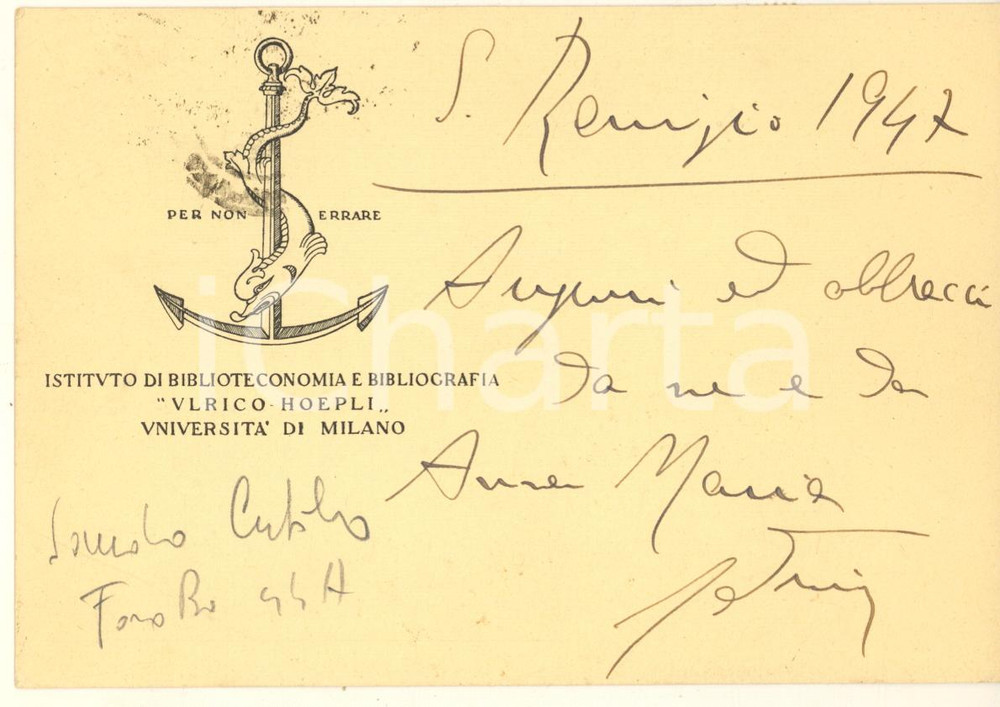 S. Remigio 1947
PER NON ERRARE
Auguri ed abbracci
da me e da
Anna Maria
ISTITVTO DI BIBLIOTECONOMIA E BIBLIOGRAFIA
"VLRICO HOEPLI„
VNIVERSITA' DI MILANO
Sandro Cutolo
Foro Bo 44A
iCharta